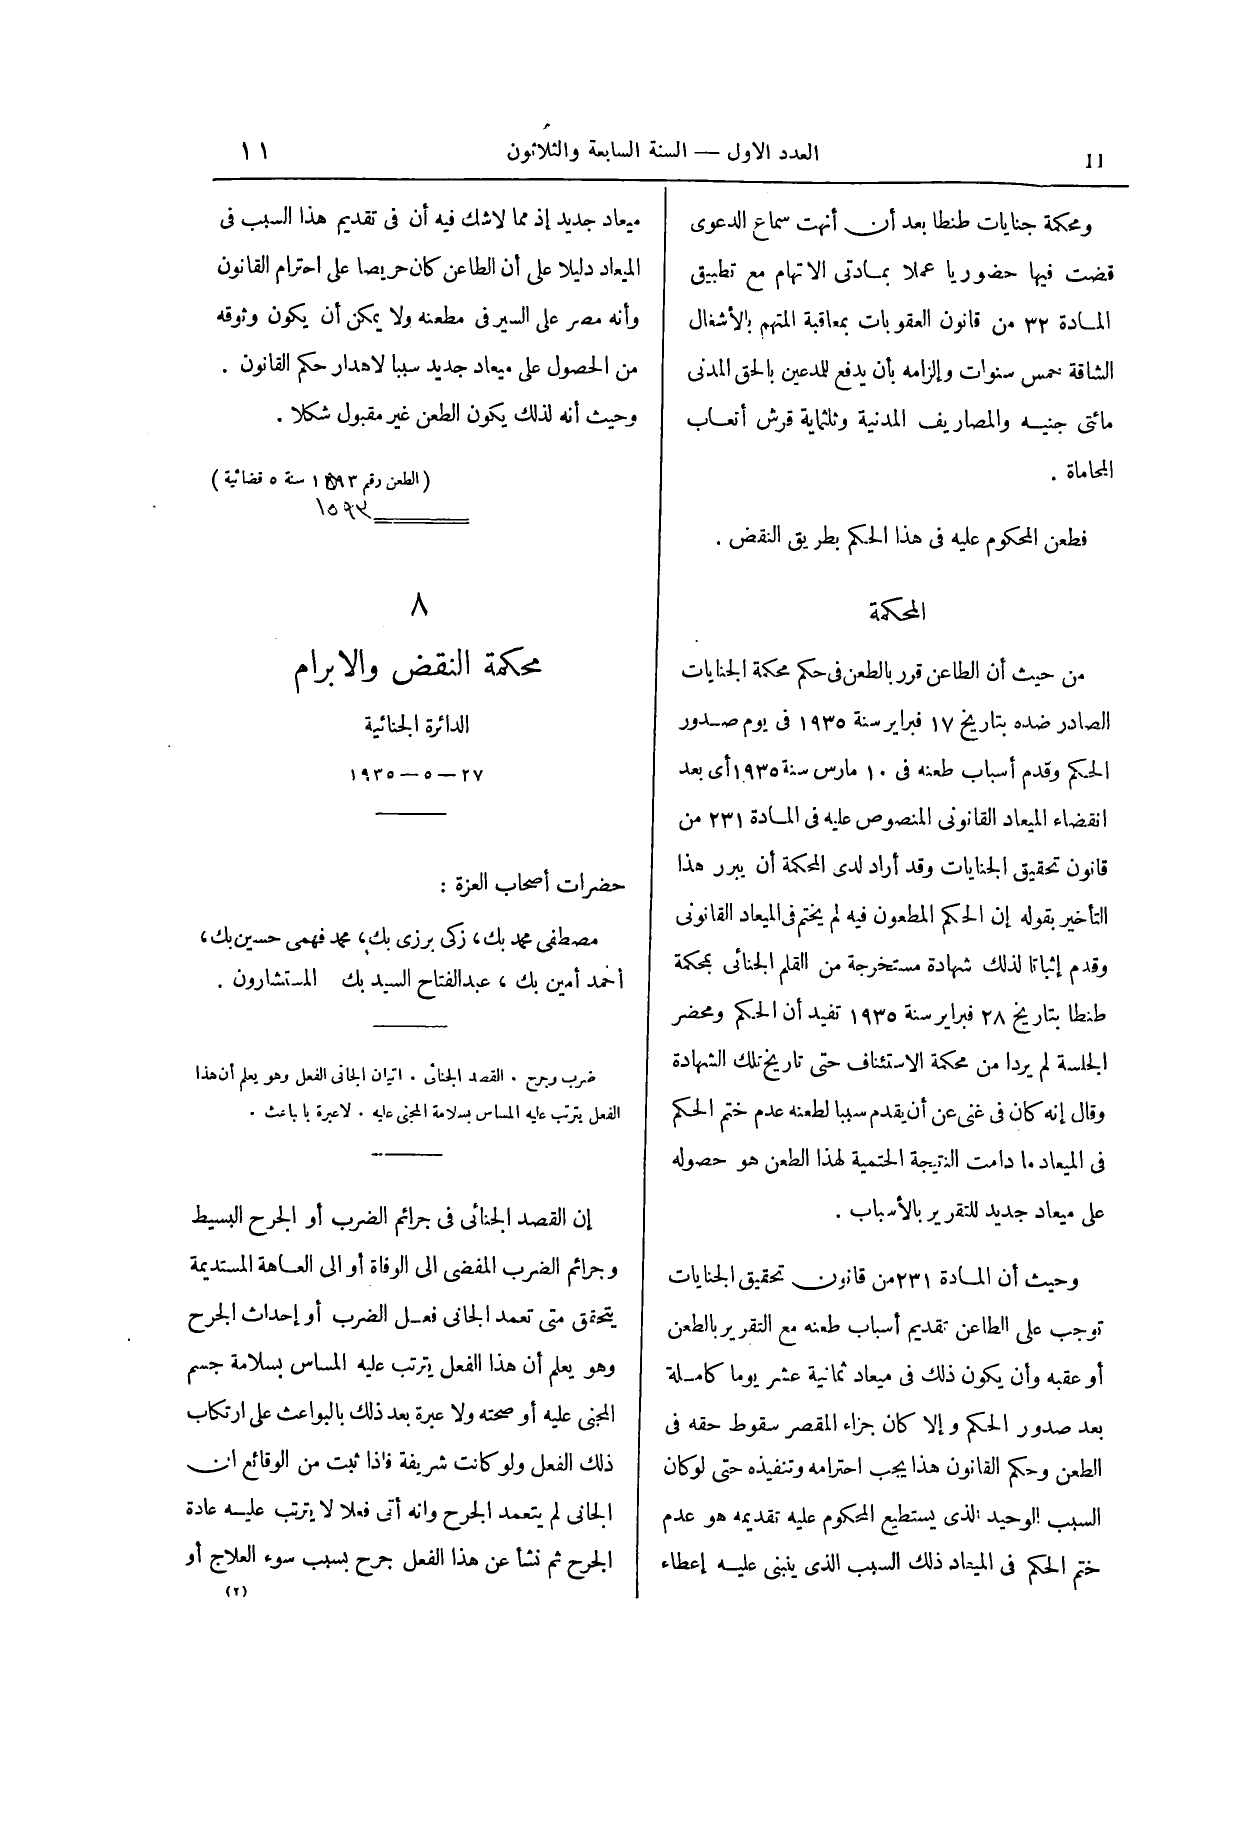 11
العدد الاول — السنة السابعة والثلاثون
١١
ومحكمة جنايات طنطا بعد أن أنهت سماع الدعوى
قضت فيها حضوريا عملا بمادتى الاتهام مع تطبيق
المادة ٣٢ من قانون العقوبات بمعاقبة المتهم بالأشغال
الشاقة خمس سنوات وإلزامه بأن يدفع للمدعين بالحق المدنى
مائتى جنيه والمصاريف المدنية وثلثماية قرش أتعاب
المحاماة .
فطعن المحكوم عليه فى هذا الحكم بطريق النقض .
المحكمة
من حيث أن الطاعن قرر بالطعن فى حكم محكمة الجنايات
الصادر ضده بتاريخ ١٧ فبراير سنة ١٩٣٥ فى يوم صدور
الحكم وقدم أسباب طعنه فى ١٠ مارس سنة ١٩٣٥ أى بعد
انقضاء الميعاد القانونى المنصوص عليه فى المادة ٢٣١ من
قانون تحقيق الجنايات وقد أراد لدى المحكمة أن يبرر هذا
التأخير بقوله إن الحكم المطعون فيه لم يختم فى الميعاد القانونى
وقدم إثباتا لذلك شهادة مستخرجة من القلم الجنائى بمحكمة
طنطا بتاريخ ٢٨ فبراير سنة ١٩٣٥ تفيد أن الحكم ومحضر
الجلسة لم يردا من محكمة الاستئناف حتى تاريخ تلك الشهادة
وقال إنه كان فى غنى عن أن يقدم سببا لطعنه عدم ختم الحكم
فى الميعاد ما دامت النتيجة الحتمية لهذا الطعن هو حصوله
على ميعاد جديد للتقرير بالأسباب .
وحيث أن المادة ٢٣١ من قانون تحقيق الجنايات
توجب على الطاعن تقديم أسباب طعنه مع التقرير بالطعن
أو عقبه وأن يكون ذلك فى ميعاد ثمانية عشر يوما كاملة
بعد صدور الحكم وإلا كان جزاء المقصر سقوط حقه فى
الطعن وحكم القانون هذا يجب احترامه وتنفيذه حتى لو كان
السبب الوحيد الذى يستطيع المحكوم عليه تقديمه هو عدم
ختم الحكم فى الميعاد ذلك السبب الذى ينبنى عليه إعطاء
ميعاد جديد إذ مما لاشك فيه أن فى تقديم هذا السبب فى
الميعاد دليلا على أن الطاعن كان حريصا على احترام القانون
وأنه مصر على السير فى مطعنه ولا يمكن أن يكون وثوقه
من الحصول على ميعاد جديد سببا لاهدار حكم القانون .
وحيث أنه لذلك يكون الطعن غير مقبول شكلا .
(الطعن رقم ١٥٩٣ سنة ٥ قضائية)
١٥٩٣
٨
محكمة النقض والابرام
الدائرة الجنائية
٢٧ — ٥ — ١٩٣٥
حضرات أصحاب العزة :
مصطفى محمد بك، زكى برزى بك، محمد فهمى حسين بك،
أحمد أمين بك ، عبدالفتاح السيد بك المستشارون .
ضرب وجرح . القصد الجنائى . اتيان الجانى الفعل وهو يعلم أن هذا
الفعل يترتب عليه المساس بسلامة المجنى عليه . لاعبرة بالباعث .
إن القصد الجنائى فى جرائم الضرب أو الجرح البسيط
وجرائم الضرب المفضى الى الوفاة أو الى العاهة المستديمة
يتحقق متى تعمد الجانى فعل الضرب أو إحداث الجرح
وهو يعلم أن هذا الفعل يترتب عليه المساس بسلامة جسم
المجنى عليه أو صحته ولا عبرة بعد ذلك بالبواعث على ارتكاب
ذلك الفعل ولو كانت شريفة فاذا ثبت من الوقائع ان
الجانى لم يتعمد الجرح وانه أتى فعلا لا يترتب عليه عادة
الجرح ثم نشأ عن هذا الفعل جرح بسبب سوء العلاج أو
(٢)